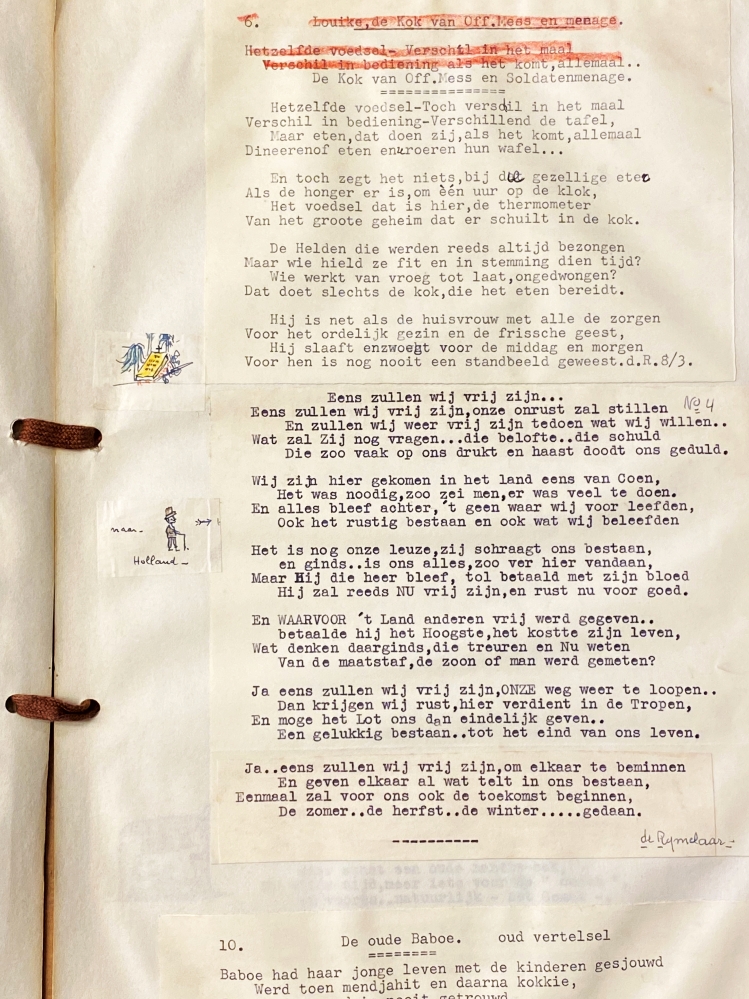 6. Louike,de Kok van Off.Mess en menage.
Hetzelfde voedsel- Verschil in het maal
Verschil in bediening als het komt,allemaal..
De Kok van Off.Mess en Soldatenmenage.
===============
Hetzelfde voedsel-Toch verschil in het maal
Verschil in bediening-Verschillend de tafel,
Maar eten,dat doen zij,als het komt,allemaal
Dineerenof eten enroeren hun wafel...
En toch zegt het niets,bij die gezellige eter
Als de honger er is,om één uur op de klok,
Het voedsel dat is hier,de thermometer
Van het groote geheim dat er schuilt in de kok.
De Helden die werden reeds altijd bezongen
Maar wie hield ze fit en in stemming dien tijd?
Wie werkt van vroeg tot laat,ongedwongen?
Dat doet slechts de kok,die het eten bereidt.
Hij is net als de huisvrouw met alle de zorgen
Voor het ordelijk gezin en de frissche geest,
Hij slaaft enzwoegt voor de middag en morgen
Voor hen is nog nooit een standbeeld geweest.d.R.8/3.
Eens zullen wij vrij zijn...
No 4
Eens zullen wij vrij zijn,onze onrust zal stillen
En zullen wij weer vrij zijn tedoen wat wij willen..
Wat zal Zij nog vragen...die belofte..die schuld
Die zoo vaak op ons drukt en haast doodt ons geduld.
Wij zijn hier gekomen in het land eens van Coen,
Het was noodig,zoo zei men,er was veel te doen.
En alles bleef achter,'t geen waar wij voor leefden,
Ook het rustig bestaan en ook wat wij beleefden
naar
Holland
Het is nog onze leuze,zij schraagt ons bestaan,
en ginds..is ons alles,zoo ver hier vandaan,
Maar Hij die heer bleef, tol betaald met zijn bloed
Hij zal reeds NU vrij zijn,en rust nu voor goed.
En WAARVOOR 't Land anderen vrij werd gegeven..
betaalde hij het Hoogste,het kostte zijn leven,
Wat denken daarginds,die treuren en Nu weten
Van de maatstaf,de zoon of man werd gemeten?
Ja eens zullen wij vrij zijn,ONZE weg weer te loopen..
Dan krijgen wij rust,hier verdient in de Tropen,
En moge het Lot ons dan eindelijk geven..
Een gelukkig bestaan..tot het eind van ons leven.
Ja..eens zullen wij vrij zijn,om elkaar te beminnen
En geven elkaar al wat telt in ons bestaan,
Eenmaal zal voor ons ook de toekomst beginnen,
De zomer..de herfst..de winter.....gedaan.
----------
de Rijmelaar
10. De oude Baboe. oud vertelsel
========
Baboe had haar jonge leven met de kinderen gesjouwd
Werd toen mendjahit en daarna kokkie,
nooit getrouwd